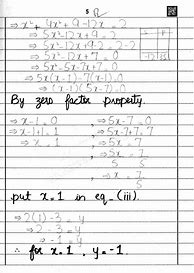 5
⇒ x² + 4x² + 9 - 12x = 2
⇒ 5x² - 12x + 9 = 2
⇒ 5x² - 12x + 9 - 2 = 2 - 2
⇒ 5x² - 12x + 7 = 0
⇒ 5x² - 5x - 7x + 7 = 0
⇒ 5x(x-1) - 7(x-1) = 0
⇒ (x-1)(5x-7) = 0
By zero factor property.
⇒ x - 1 = 0 ; ⇒ 5x - 7 = 0
⇒ x - 1 + 1 = 1 ; ⇒ 5x - 7 + 7 = 7
⇒ x = 1 ; ⇒ 5x = 7
⇒ x = 7/5
put x = 1 in eq - (iii).
⇒ 2(1) - 3 = y
⇒ 2 - 3 = y
⇒ -1 = y
∴ for x = 1 , y = -1.